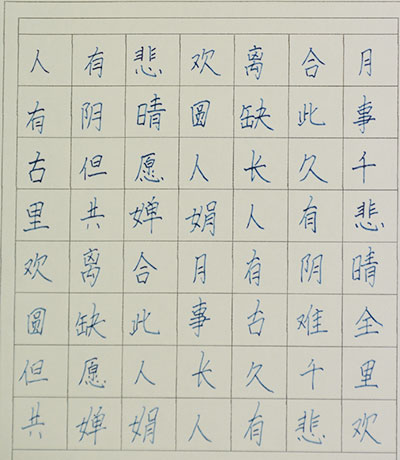 人有悲欢离合月
有阴晴圆缺此事
古但愿人长久千
里共婵娟人有悲
欢离合月有阴晴
圆缺此事古难全
但愿人长久千里
共婵娟人有悲欢